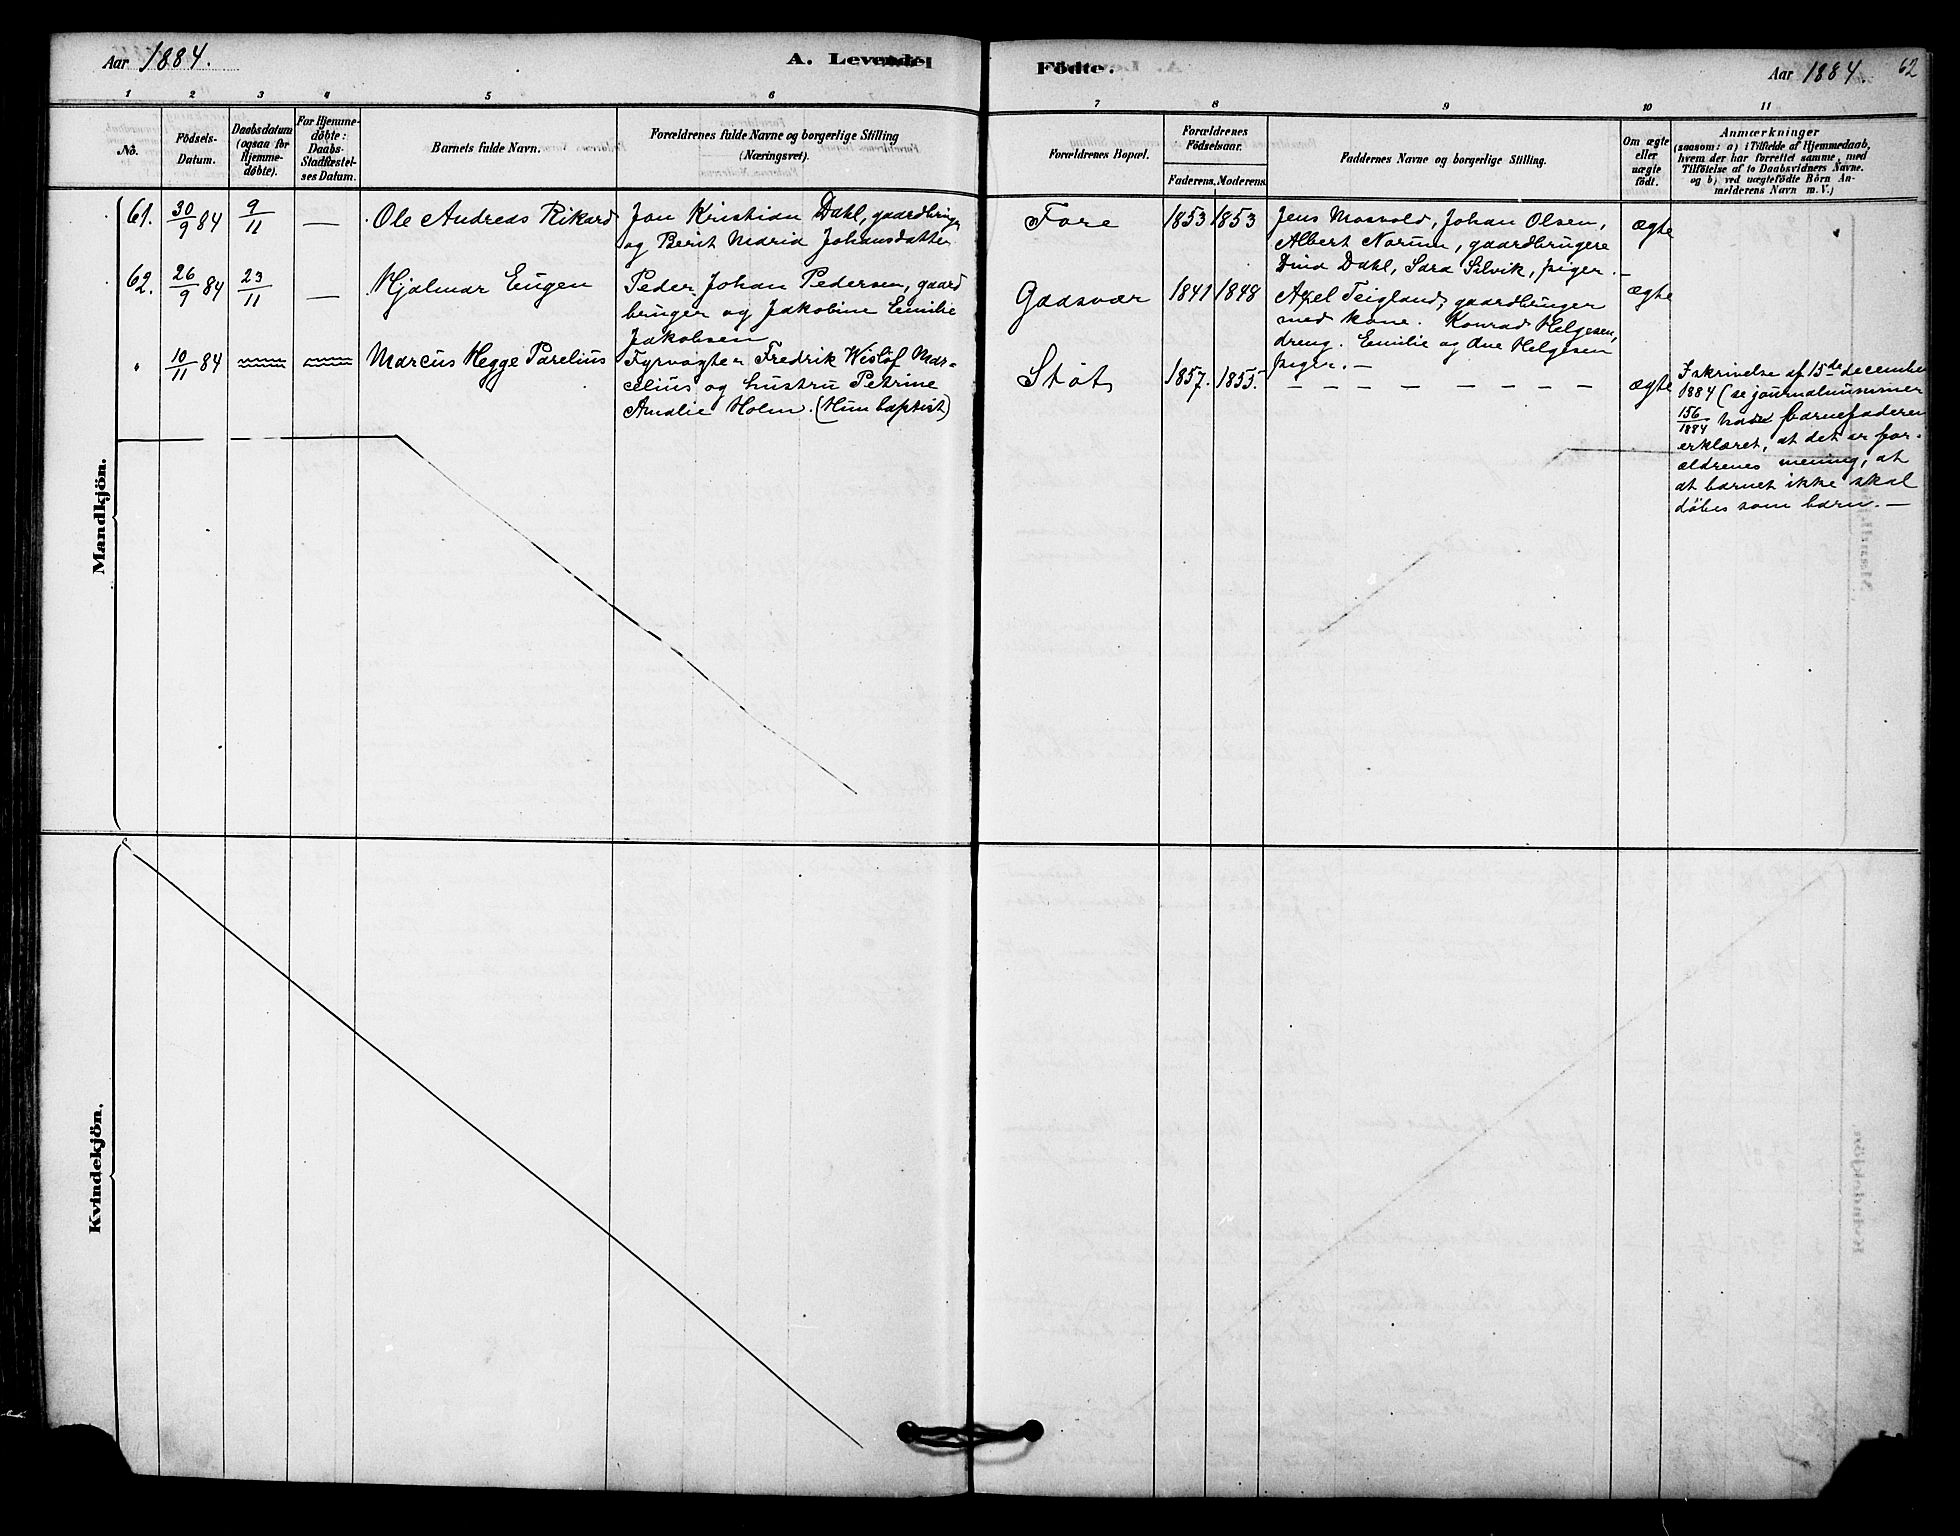 Aar 1884.
A. Levende
Födte.
Aar 1884.
62
1 2 3 4 5 6 7 8 9 10 11
No.
Födsels-
Datum.
Daabsdatum
(ogsaa for
Hjemme-
döbte).
For Hjemme-
döbte:
Daabs-
Stadfæstel-
ses Datum.
Barnets fulde Navn.
Forældrenes fulde Navne og borgerlige Stilling
(Næringsvei).
Forældrenes Bopæl.
Forældrenes
Födselsaar.
Faderens. Moderens.
Faddernes Navne og borgerlige Stilling.
Om ægte
eller
uægte
födt.
Anmærkninger
(saasom: a) i Tilfælde af Hjemmedaab,
hvem der har forrettet samme, med
Tilföielse af to Daabsvidners Navne.
og b) ved uægtefödte Börn An-
melderens Navn m. V.)
Mandkjön.
61.
30/9 84
9/11
—
Ole Andreas Rikard
Jon Kristian Dahl, gaardbruger
og Berit Maria Johansdatter
Fore
1853 1853
Jens Mosvold, Johan Olsen,
Albert Norum, gaardbrugere
Dina Dahl, Sara Selvik, piger. —
ægte
62.
26/9 84
23/11
—
Hjalmar Eugen
Peder Johan Pedersen, gaard
bruger og Jakobine Emilie
Jakobsen
Gaasvær
1841 1848
Axel Teigland, gaardbruger
med kone. Konrad Helgesen,
dreng. Emilie og Ane Helgesen
piger. —
ægte
"
10/11 84
Marcus Hegge Parelius
Fyrvogter Fredrik Wisløf Mar-
celius og hustru Petrine
Amalie Holm. (Hun baptist)
Støt
1857. 1855.
— — — — — — — —
ægte
I skrivelse af 15de december
1884 (se journalnummer
156/1884 barnefaderen
erklæret, at det er for-
ældrenes mening, at
at barnet ikke skal
døbes som barn. —
Kvindekjön.